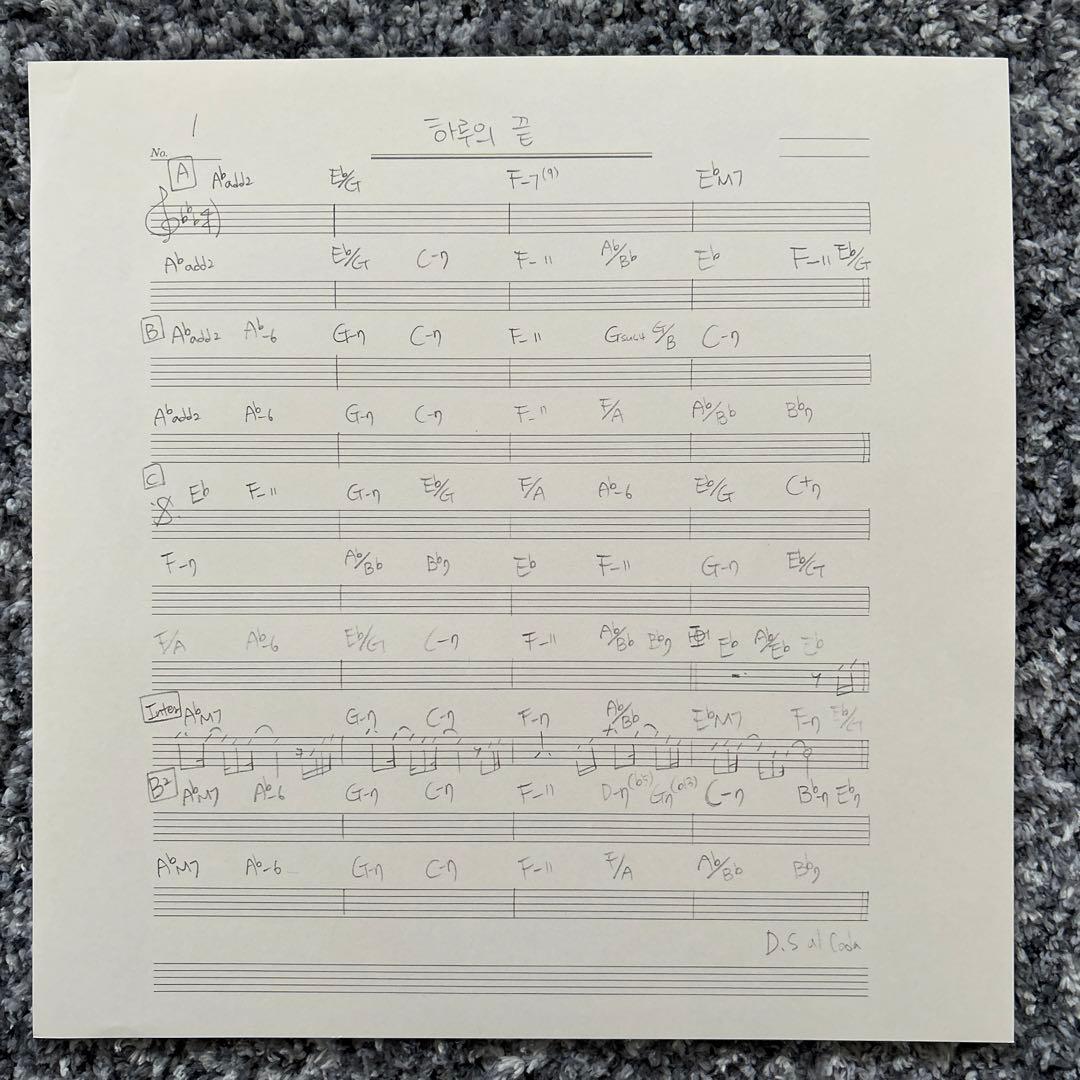 1 하루의 끝
No.
A A♭add2 E♭/G F-7(9) E♭M7
A♭add2 E♭/G C-7 F-11 A♭/B♭ E♭ F-11 E♭/G
B A♭add2 A♭-6 G-7 C-7 F-11 Gsus4 G/B C-7
A♭add2 A♭-6 G-7 C-7 F-11 F/A A♭/B♭ B♭7
C E♭ F-11 G-7 E♭/G F/A A♭-6 E♭/G C+7
F-7 A♭/B♭ B♭7 E♭ F-11 G-7 E♭/G
F/A A♭-6 E♭/G C-7 F-11 A♭/B♭ B♭7 E♭ A♭/E♭ E♭
Inter A♭M7 G-7 C-7 F-7 A♭/B♭ E♭M7 F-7 E♭/G
B² A♭M7 A♭-6 G-7 C-7 F-11 D-7(♭5) G7(♭13) C-7 B♭-7 E♭7
A♭M7 A♭-6 G-7 C-7 F-11 F/A A♭/B♭ B♭7
D.S al Coda